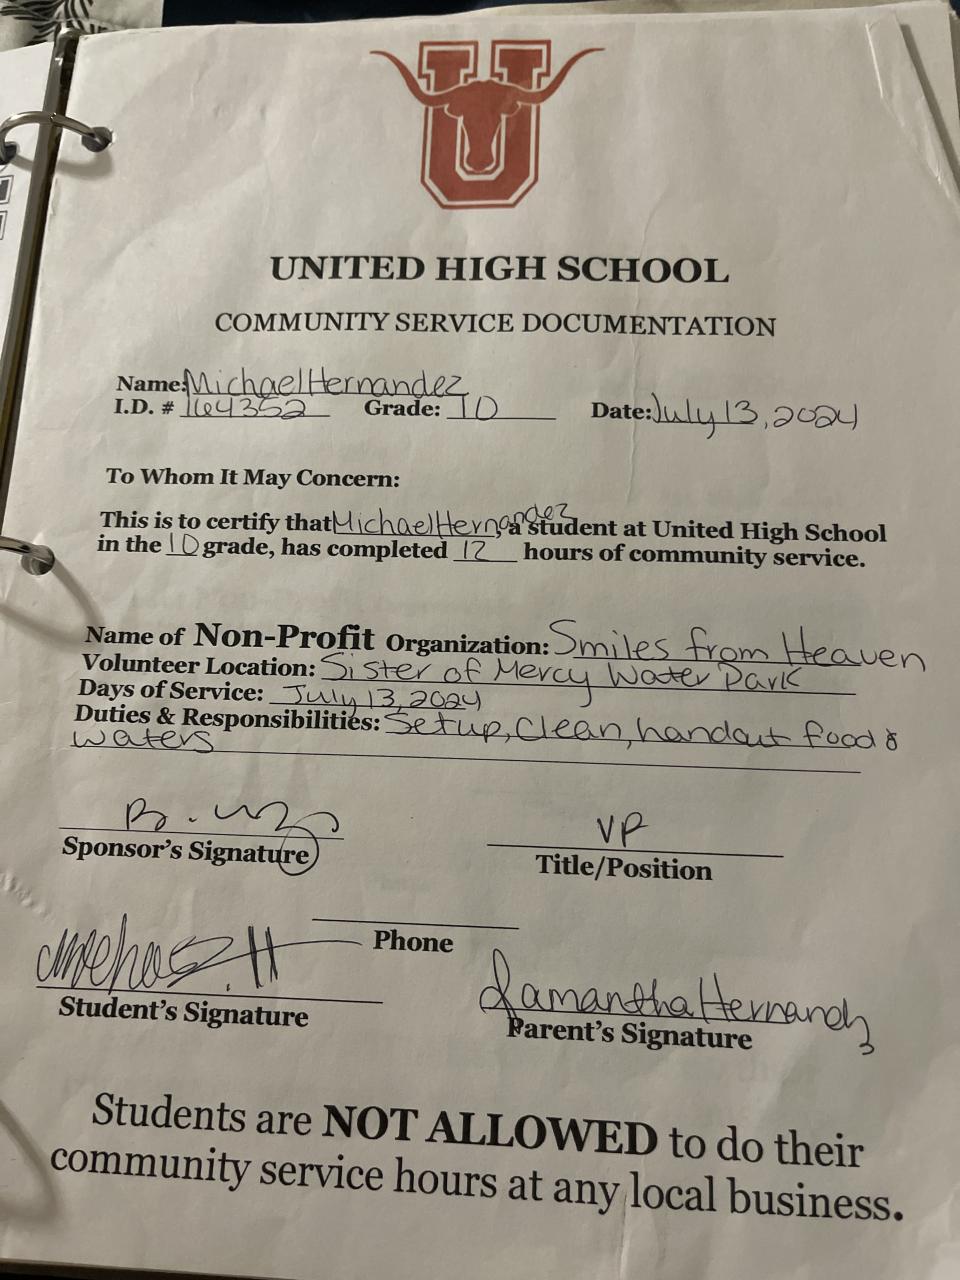 U
UNITED HIGH SCHOOL
COMMUNITY SERVICE DOCUMENTATION
Name: Michael Hernandez
I.D. # 164352 Grade: 10 Date: July 13, 2024
To Whom It May Concern:
This is to certify that Michael Hernandez, a student at United High School
in the 10 grade, has completed 12 hours of community service.
Name of Non-Profit Organization: Smiles from Heaven
Volunteer Location: Sister of Mercy Water Park
Days of Service: July 13, 2024
Duties & Responsibilities: Setup, Clean, handout food &
waters
B.
Sponsor's Signature
VP
Title/Position
Phone
Student's Signature
Samantha Hernandez
Parent's Signature
Students are NOT ALLOWED to do their
community service hours at any local business.